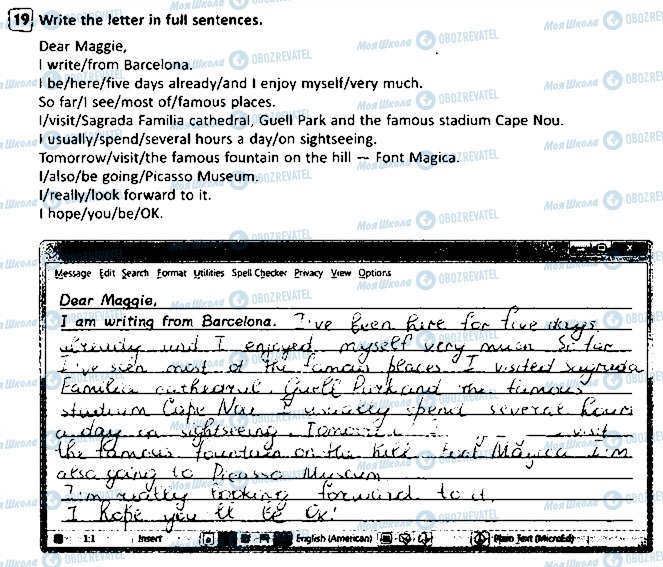 19 Write the letter in full sentences.
Dear Maggie,
I write/from Barcelona.
I be/here/five days already/and I enjoy myself/very much.
So far/I see/most of/famous places.
I/visit/Sagrada Familia cathedral, Guell Park and the famous stadium Cape Nou.
I usually/spend/several hours a day/on sightseeing.
Tomorrow/visit/the famous fountain on the hill — Font Magica.
I/also/be going/Picasso Museum.
I/really/look forward to it.
I hope/you/be/OK.
Message Edit Search Format Utilities Spell Checker Privacy View Options
Dear Maggie,
I am writing from Barcelona. I've been here for five days
already and I enjoyed myself very much So far
I've seen most of the famous places I visited Sagrada
Familia cathedral, Guell Park and the famous
stadium Cape Nou I usually spend several hours
a day on sightseeing. visit
the famous fountain on the hill Font Magica I'm
also going to Picasso Museum
I'm really looking forward to it.
I hope you'll be Ok!
1:1 Insert English (American) Plain Text (MicroEd)
Моя Школа OBOZREVATEL